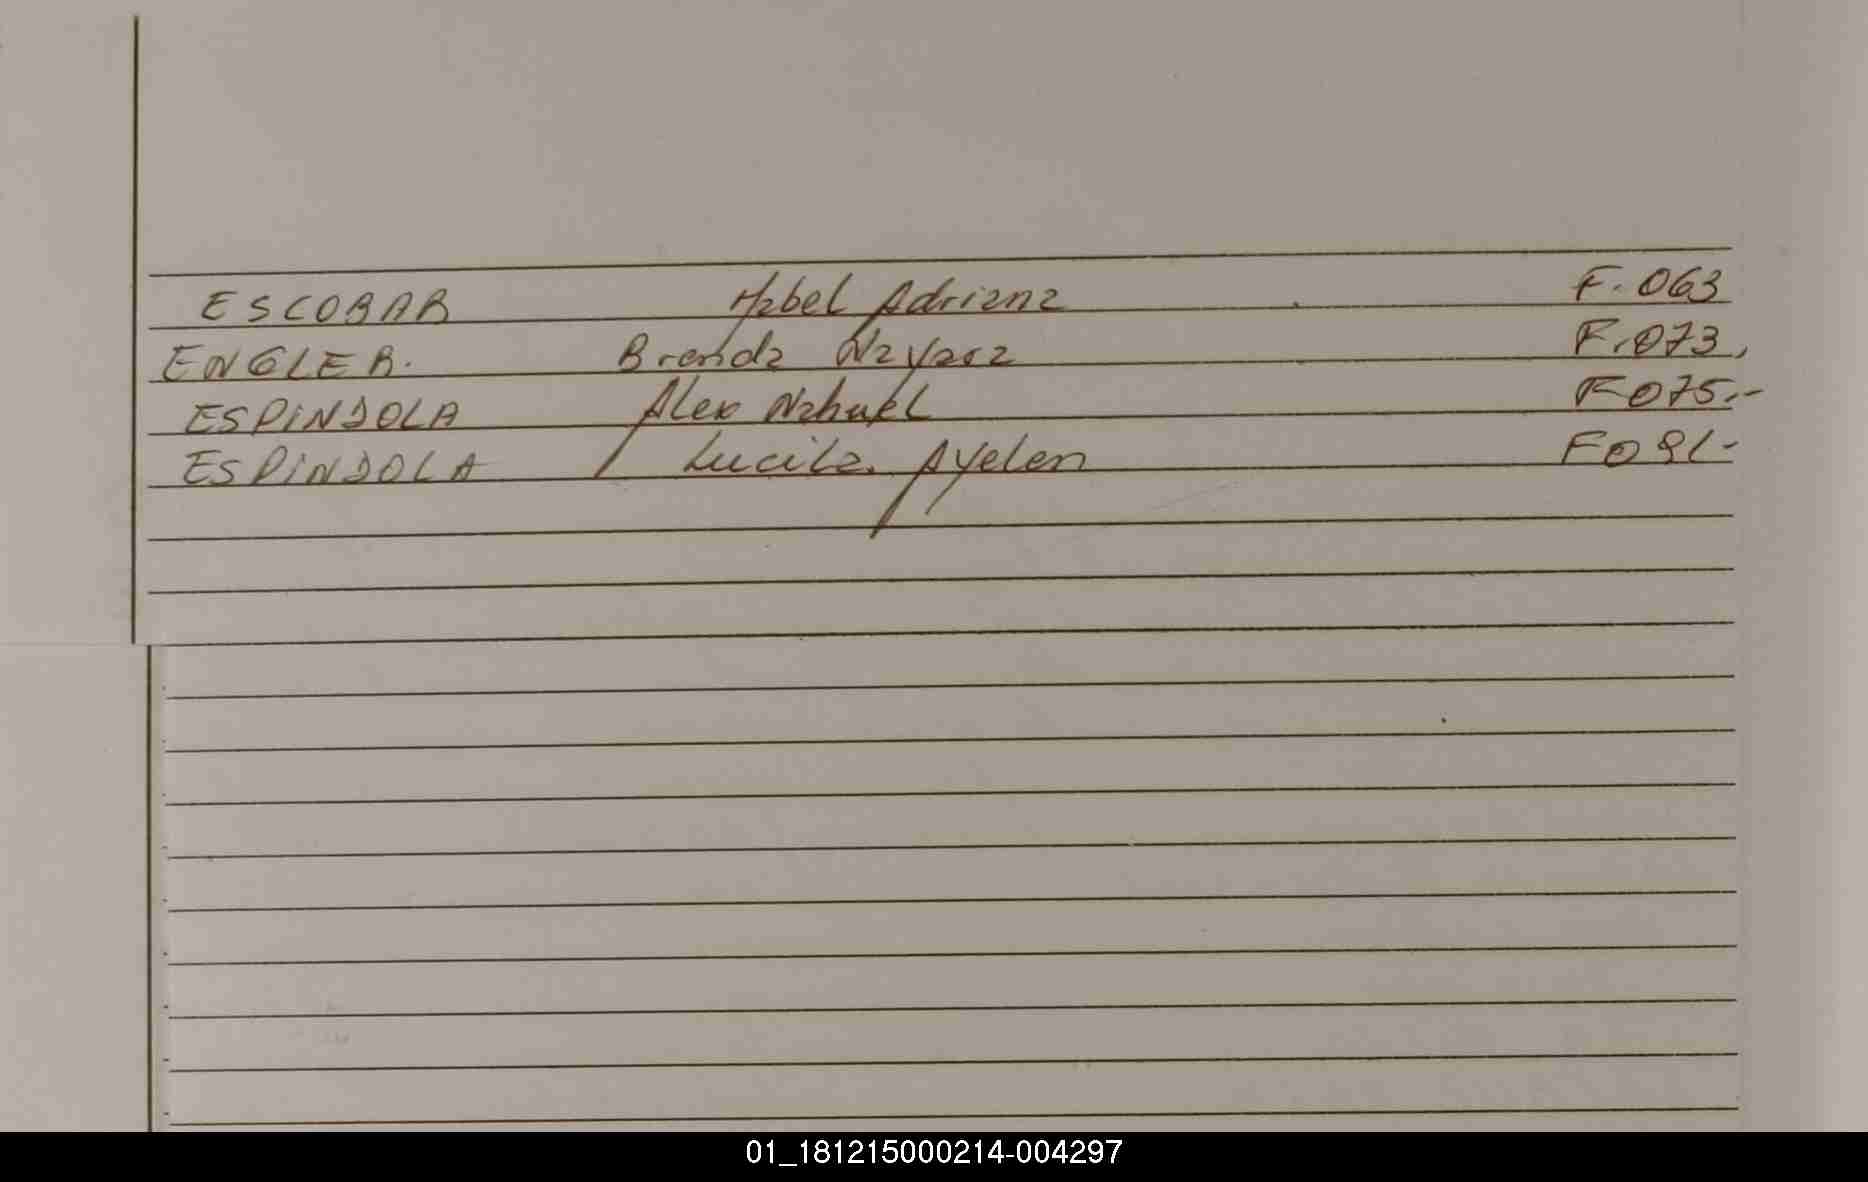 ESCOBAR Mabel Adriana F. 063
ENGLER. Brenda Nayara F. 073,
ESPINDOLA Alex Nahuel F 075.-
ESPINDOLA Lucila. Ayelen F 091-
01_181215000214-004297